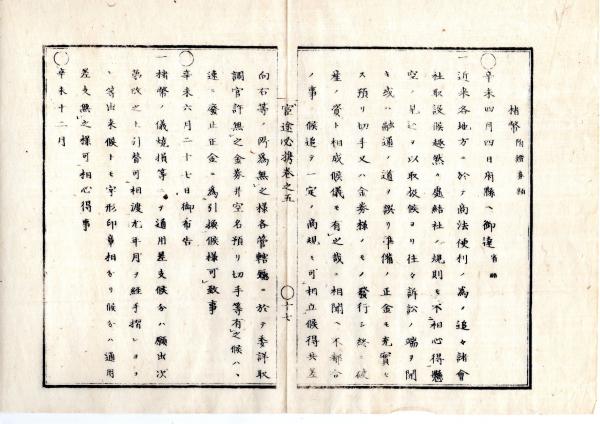 楮幣 附贋寳貨
◯辛未四月四日府縣ヘ御達 省略
一近来各地方ニ於テ商法便利ノ爲メ追々諸會
社取設候趣然ル處結社ノ規則モ不相心得懸
空ノ見込ヲ以取扱候ヨリ往々訴訟ノ端ヲ開
キ或ハ融通ノ道ヲ誤リ準備ノ正金モ充實セ
ス預リ切手又ハ金券様ノモノ發行シ終ニ破
産ノ資ト相成候儀モ有之哉ニ相聞ヘ不都合
ノ事ニ候追テ一定ノ商規モ可相立候得共差
官途必携巻之五
◯十七
向右等ノ所爲無之様各管轄廳ニ於テ委詳取
調官許無之金券并空名預リ切手等有之候ハヽ
速ニ廢止正金ニ爲引換候様可致事
◯辛未六月二十七日御布告
一楮幣ノ儀燒損等ニテ通用差支候分ハ願出次
第改之上引替可相渡尤年月ヲ経手摺ニヨリ
候等出来候トモ字形印章相分リ候分ハ通用
差支無之様可相心得事
◯辛未十二月